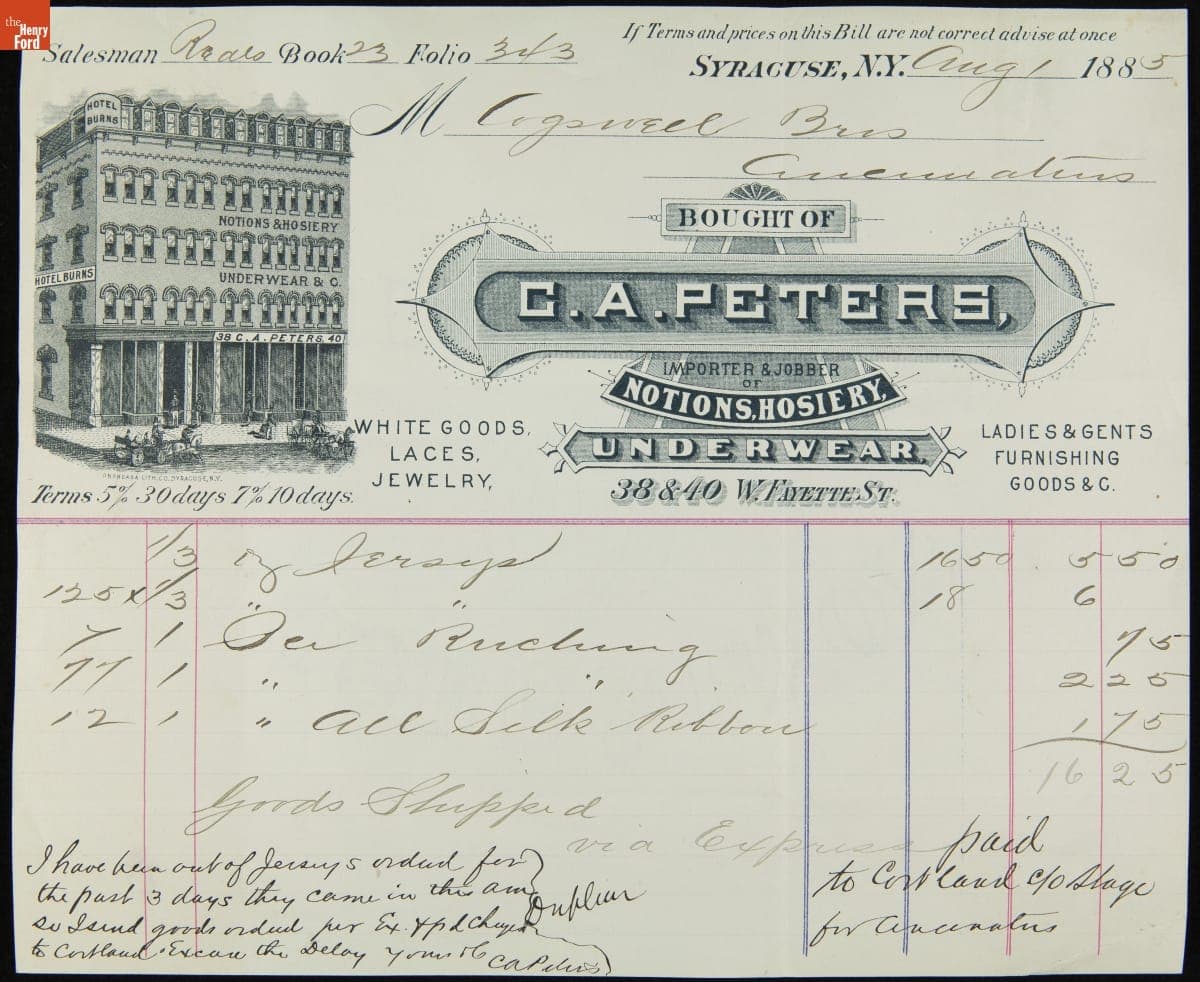 the
Henry
Ford
Salesman Book 23 Folio 343
If Terms and prices on this Bill are not correct advise at once
SYRACUSE, N.Y. Aug 1 1885
M Cogswell Bros
Cincinnatus
HOTEL
BURNS
NOTIONS & HOSIERY
HOTEL BURNS
UNDERWEAR & C.
38 C. A. PETERS. 40
ONONDAGA LITH. CO. SYRACUSE, N.Y.
BOUGHT OF
C. A. PETERS,
IMPORTER & JOBBER
OF
NOTIONS, HOSIERY,
UNDERWEAR,
38 & 40 W. FAYETTE ST.
WHITE GOODS,
LACES,
JEWELRY,
LADIES & GENTS
FURNISHING
GOODS & C.
Terms 5% 30 days 7% 10 days.
1/3 Dz Jersys 16 50 5 50
125 x 1/3 " " 18 6
7 1 Ruching 75
77 1 " " 2 25
12 1 " All Silk Ribbon 1 75
16 25
Goods Shipped
via Express paid
to Cortland c/o Stage
for Cincinnatus
I have been out of Jerseys ordered for
the past 3 days they came in this am
so I send goods ordered per Ex. & pd Charges
to Cortland. Excuse the Delay Yours &c
C A Peters